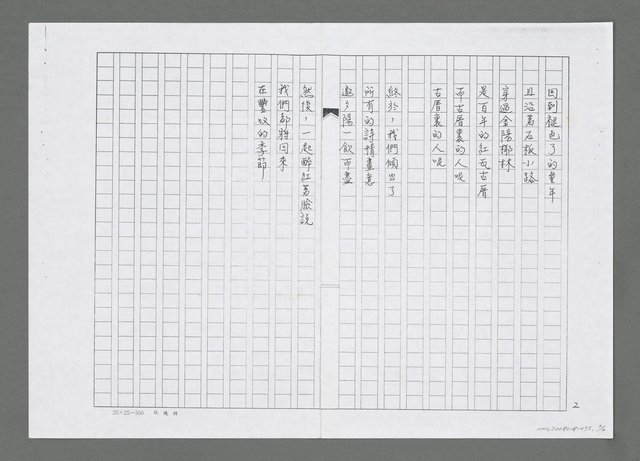 回到褪色了的童年
且沿著石板小路
穿過金陽椰林
是百年的紅瓦古厝
而古厝裏的人呢
古厝裏的人呢
終於，我們傾出了
所有的詩情畫意
邀夕陽一飲而盡
然後，一起醉紅著臉說
我們都將回來
在豐收的季節
2
20×25=500